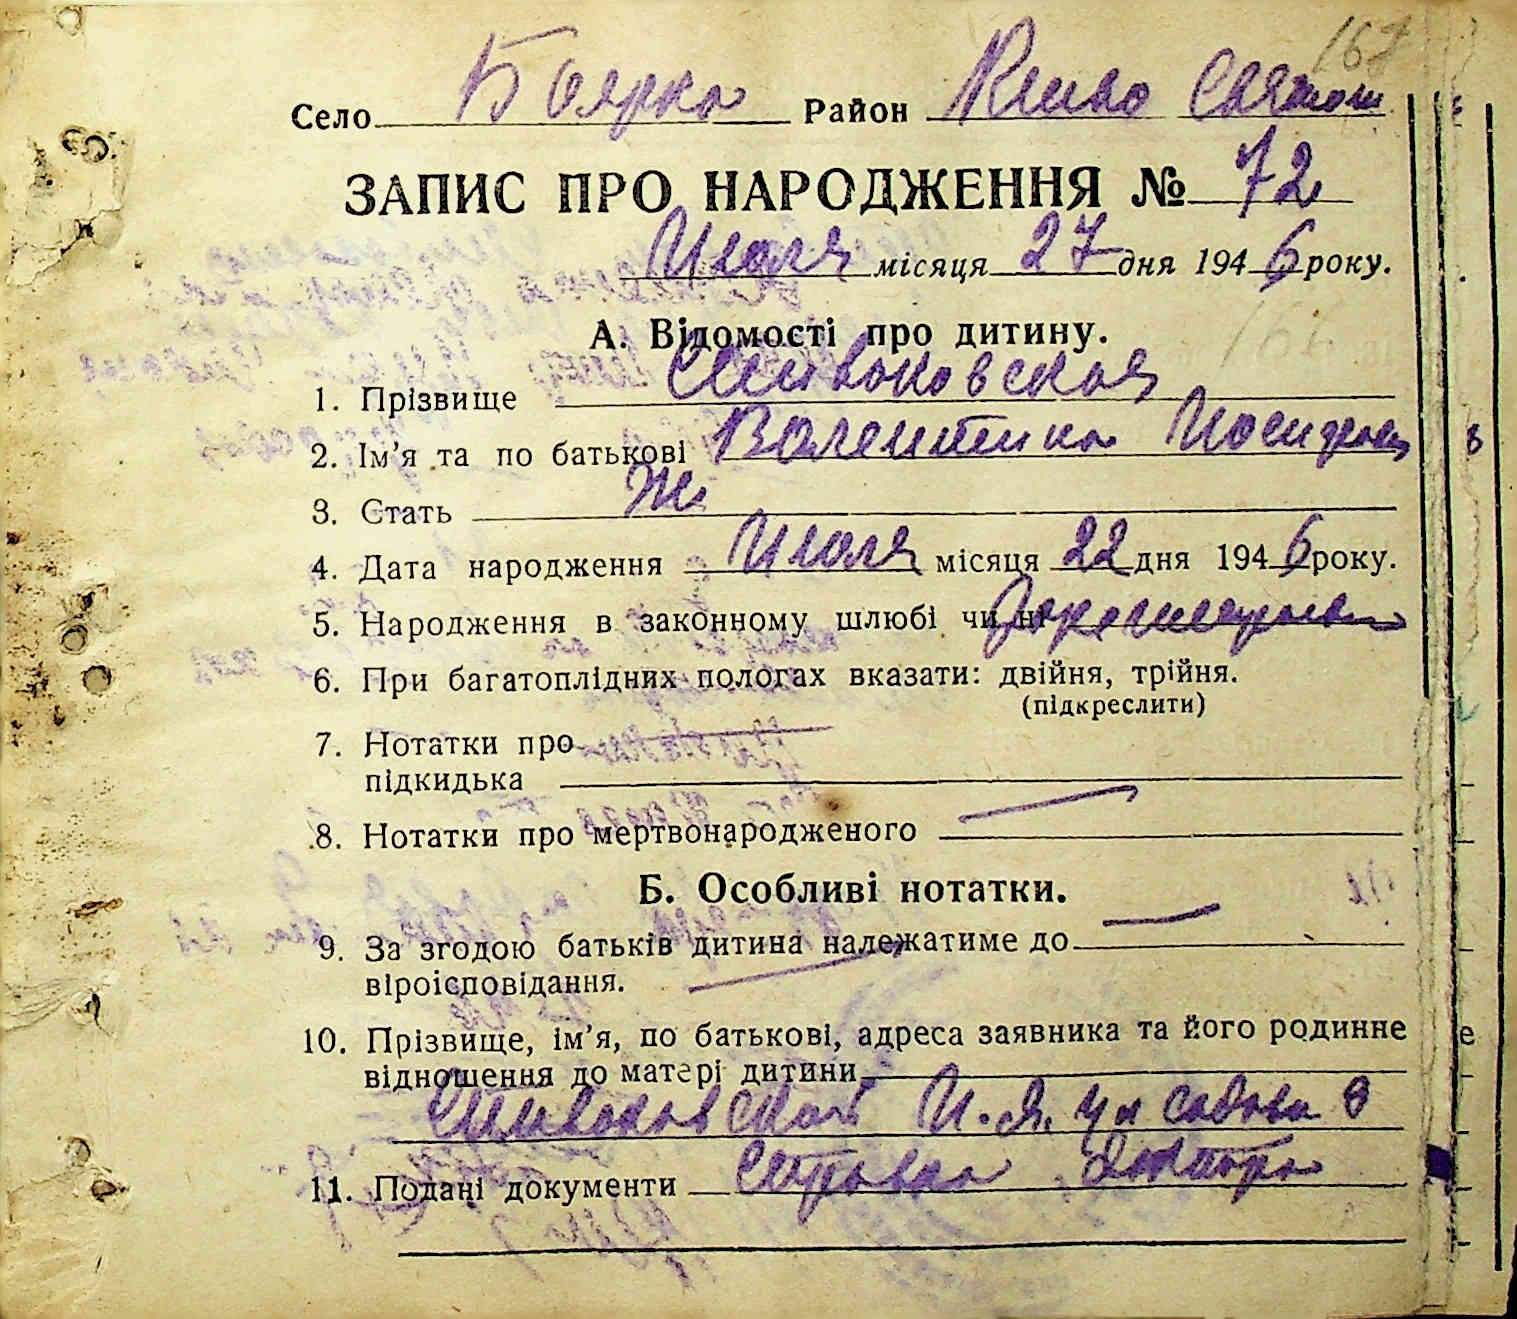 168
Село Боярка Район Киево Святош
ЗАПИС ПРО НАРОДЖЕННЯ № 72
Июля місяця 27 дня 1946 року.
А. Відомості про дитину.
1. Прізвище Сливаковская
2. Ім'я та по батькові Валентина Иосиповн
3. Стать Ж
4. Дата народження Июля місяця 22 дня 1946 року.
5. Народження в законному шлюбі чи ні
6. При багатоплідних пологах вказати: двійня, трійня.
(підкреслити)
7. Нотатки про
підкидька
8. Нотатки про мертвонародженого
Б. Особливі нотатки.
9. За згодою батьків дитина належатиме до
віроісповідання.
10. Прізвище, ім'я, по батькові, адреса заявника та його родинне
відношення до матері дитини
И. Я. ул садова 8
11. Подані документи Справка доктора